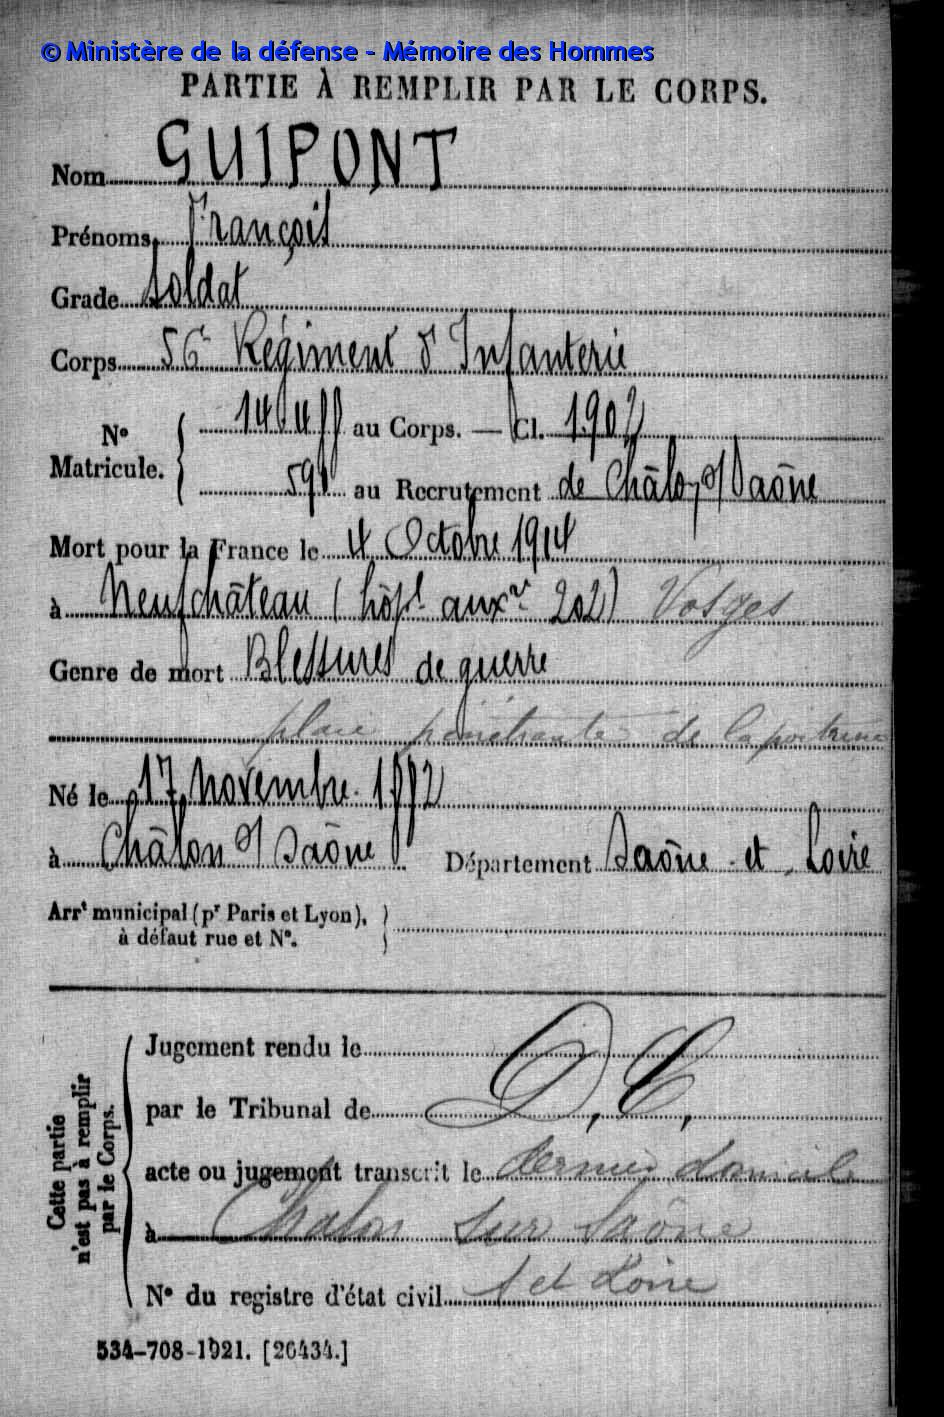 © Ministère de la défense - Mémoire des Hommes
PARTIE À REMPLIR PAR LE CORPS.
Nom GUIPONT
Prénoms François
Grade Soldat
Corps 56e Régiment d'Infanterie
N° Matricule. au Corps. — Cl. 1902
591 au Recrutement de Châlon s/ Saône
Mort pour la France le 4 Octobre 1914
à Neufchâteau (hôpl auxre 202) Vosges
Genre de mort Blessures de guerre
plaie pénétrante de la poitrine
Né le 17 Novembre 1882
à Châlon s/ Saône Département Saône et Loire
Arrt municipal (pr Paris et Lyon),
à défaut rue et N°.
Cette partie
n'est pas à remplir
par le Corps.
Jugement rendu le
par le Tribunal de D, C,
acte ou jugement transcrit le dernier domicile
à Chalon sur Saône
N° du registre d'état civil S et Loire
534-708-1921. [26434.]